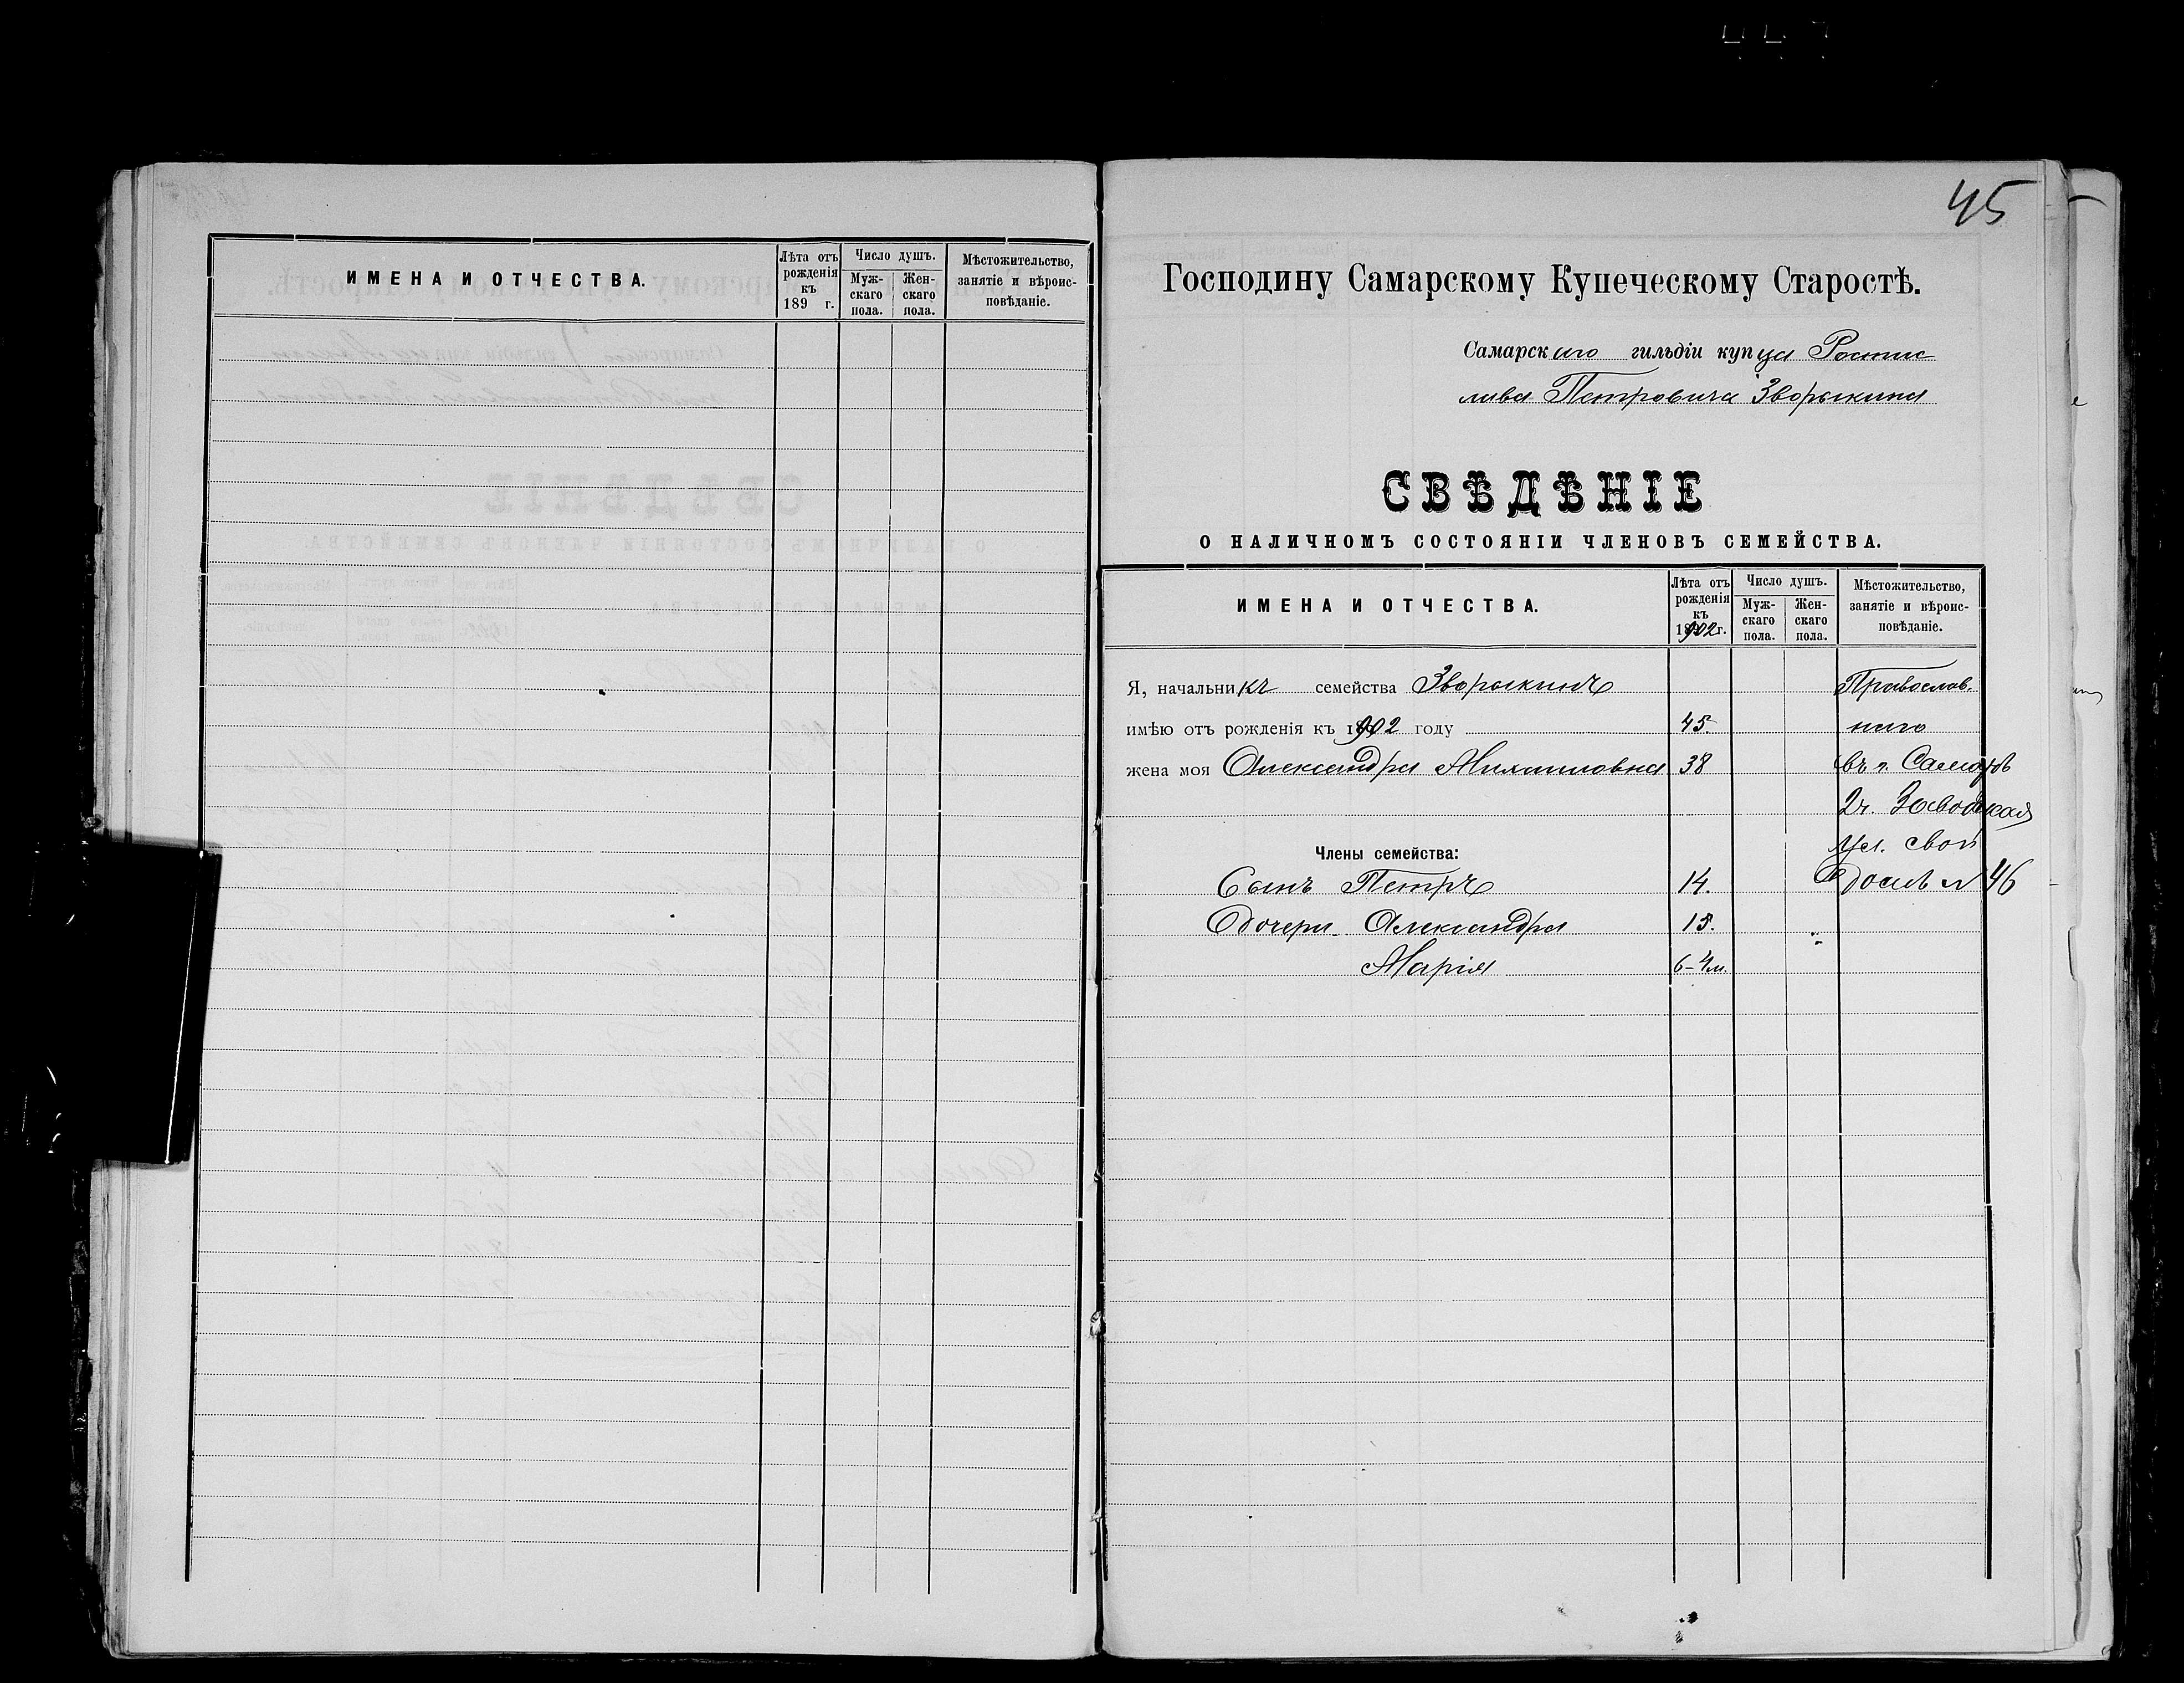 ИМЕНА И ОТЧЕСТВА.
Лѣта отъ рожденія къ 189 г.
Число душъ.
Муж-скаго пола.
Жен-скаго пола.
Мѣстожительство, занятіе и вѣроис-повѣданіе.
45
Господину Самарскому Купеческому Старостѣ.
Самарскаго гильдіи купца Ростис
лава Петровича Зворыкина
СВѢДѢНІЕ
О НАЛИЧНОМЪ СОСТОЯНІИ ЧЛЕНОВЪ СЕМЕЙСТВА.
ИМЕНА И ОТЧЕСТВА.
Лѣта отъ рожденія къ 1902 г.
Число душъ.
Муж-скаго пола.
Жен-скаго пола.
Мѣстожительство, занятіе и вѣроис-повѣданіе.
Я, начальникъ семейства Зворыкинъ Православ.
имѣю отъ рожденія къ 1902 году 45. наго
жена моя Александра Михаиловна 38 въ г. Самарѣ
2 ч. Заводская
ул. свой
Члены семейства:
Сынъ Петръ 14. домъ № 46
Дочери Александра 15.
Марія 6-4 м.